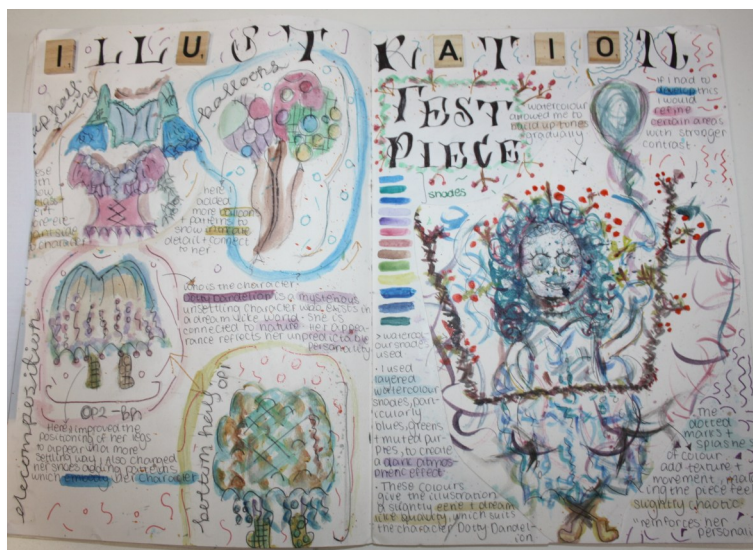 ILLUSTRATION
half
balloons
here I
added
more balloons
patterns to
show unique
detail + connect
to her.
who is the character -
Dotty Dandelion is a mysterious
unsettling character who exists in
a dream like world. She is
connected to nature. Her appea-
rance reflects her unpredictable
personality
OP2 -
Here I improved the
positioning of her legs
to appear in a more
setting way. I also changed
her shoes adding patterns
which embody her character
decomposition
bottom half op1
TEST
PIECE
watercolour
allowed me to
build up tones
gradually
if I had to
develop this
I would
refine
certain areas
with stronger
contrast.
shades
our shades
used
• I used
layered
watercolour
shades, part-
icularly
blues, greens
+ muted pur-
ples, to create
a dark atmos-
pheric effect
• These colours
give the illustration
a slightly eerie + dream
like quality, which suits
the character Dotty Dandel-
ion
The
dotted
marks +
splashes
of colour
add texture +
movement, mak-
ing the piece feel
slightly chaotic
reinforces her
personality